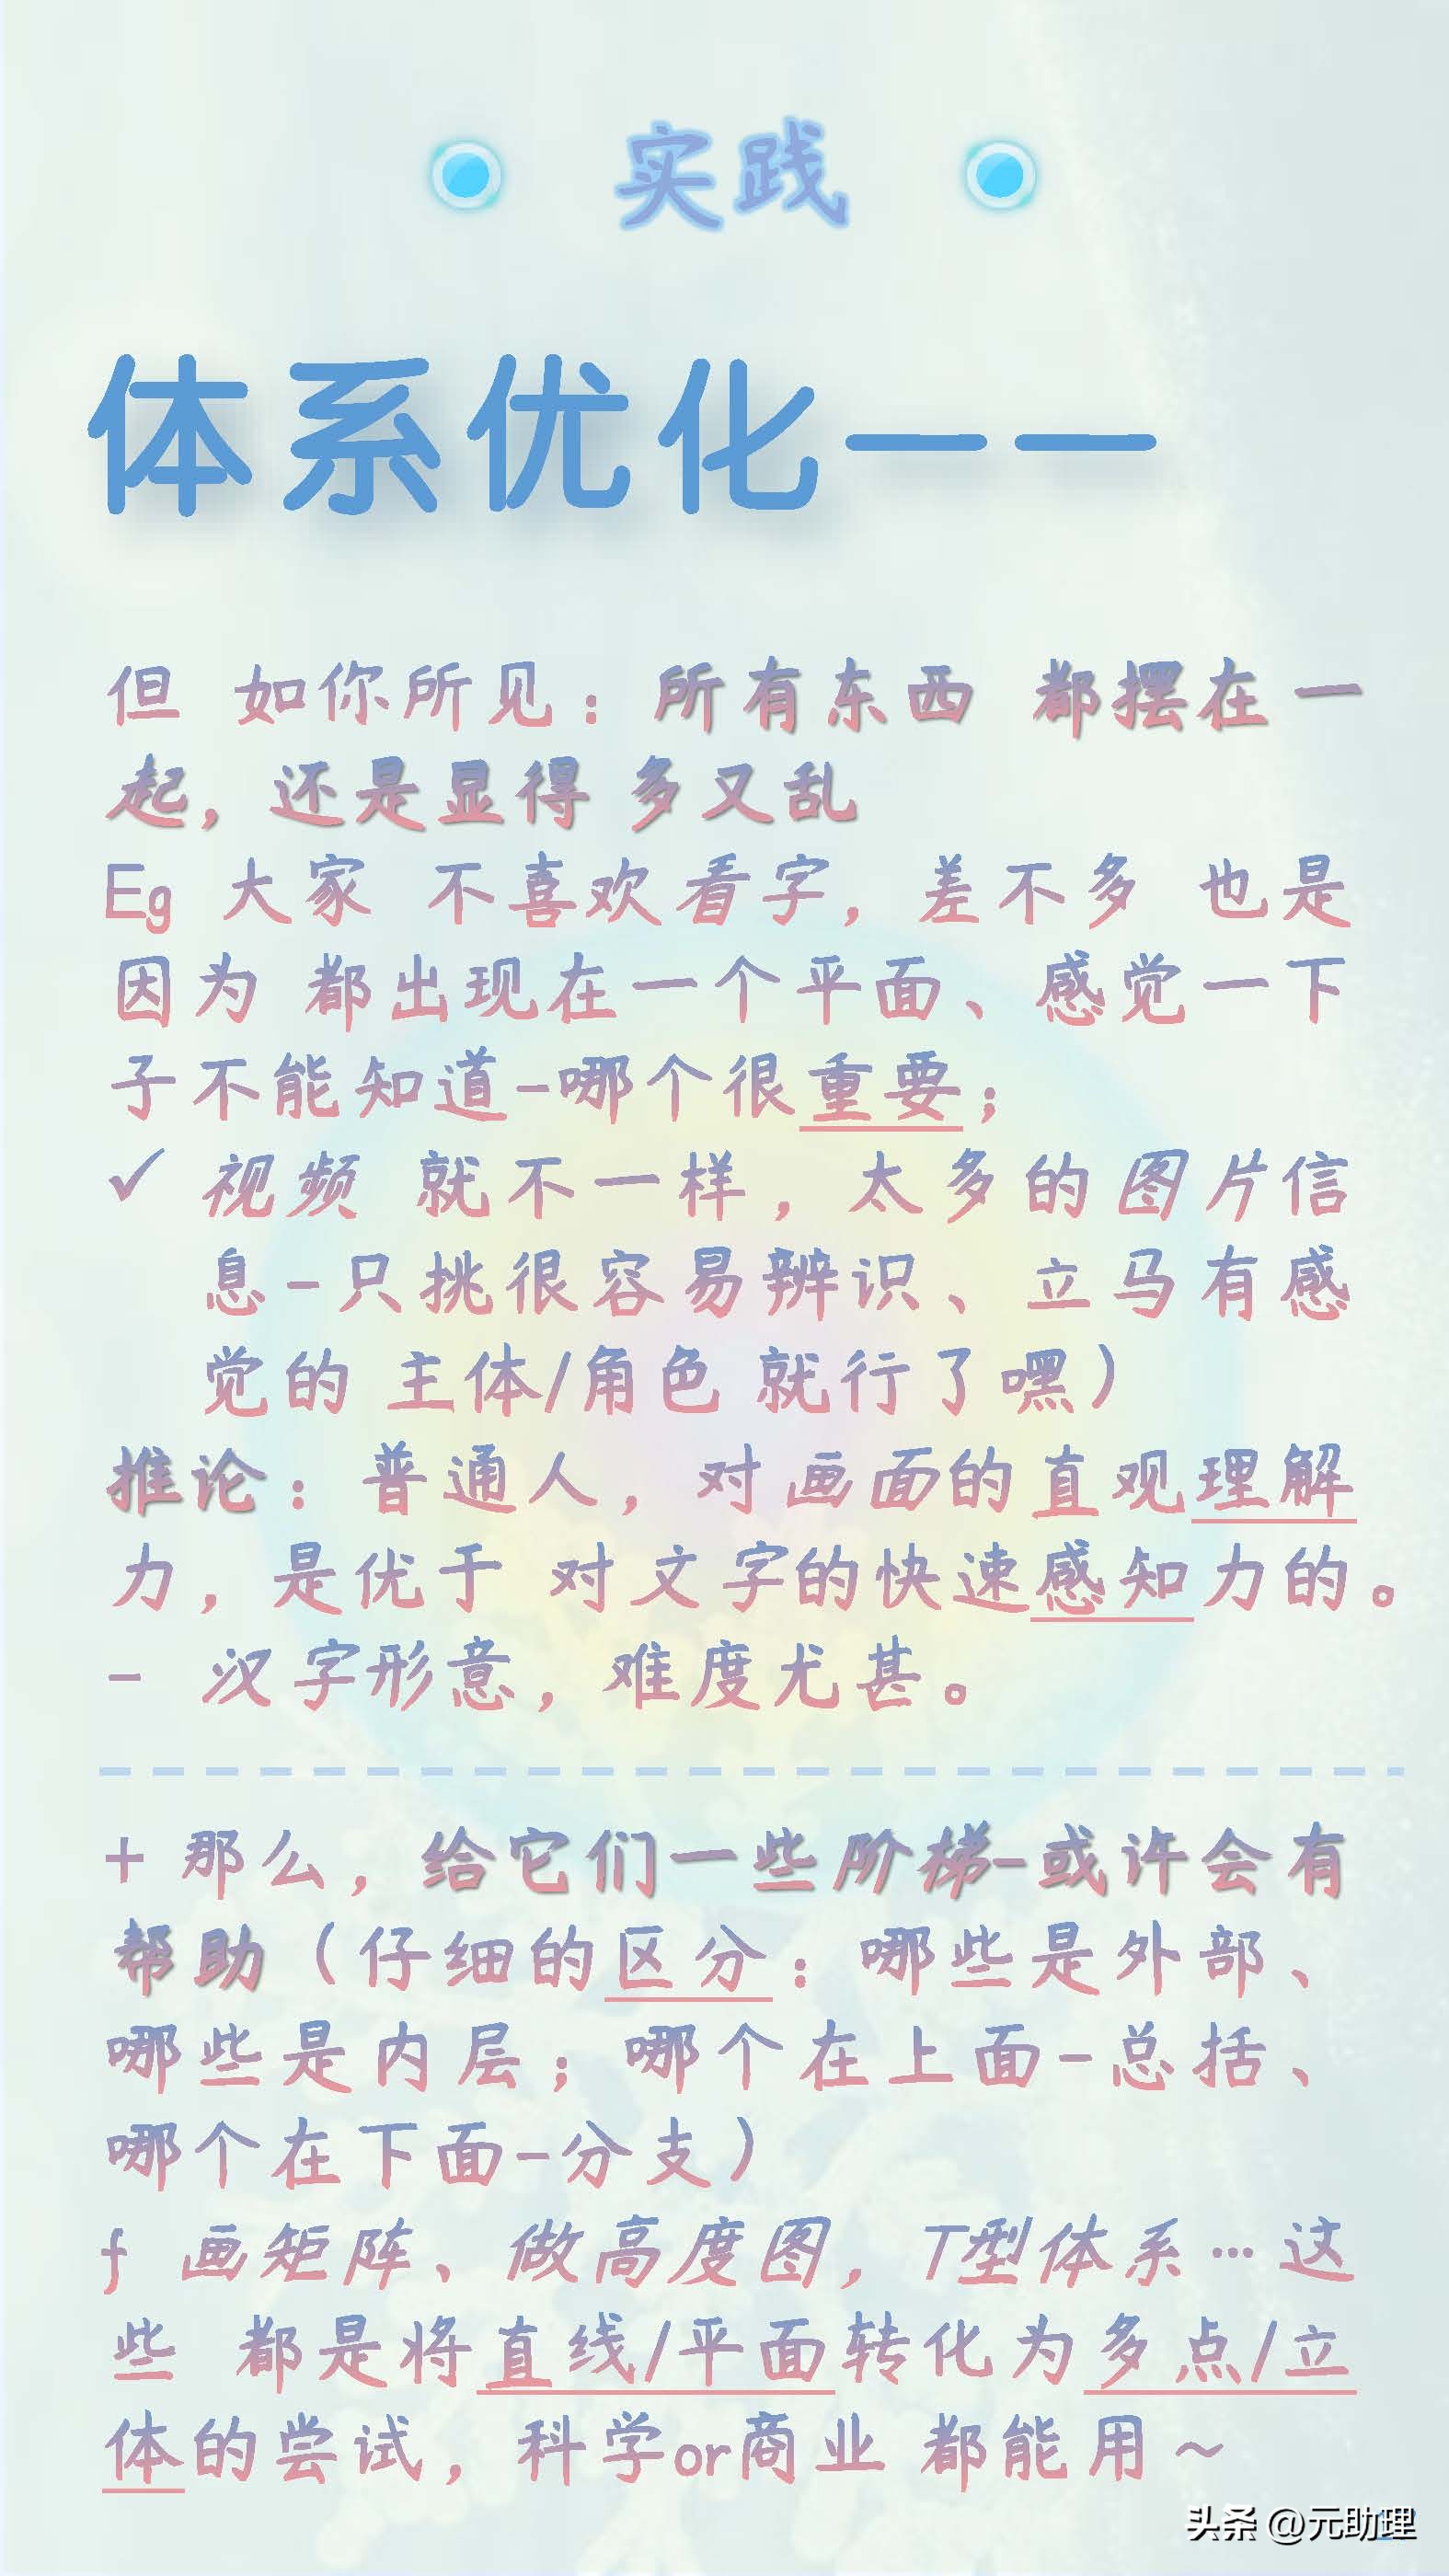 实践
体系优化——
但 如你所见：所有东西 都摆在一
起，还是显得 多又乱
Eg 大家 不喜欢看字，差不多 也是
因为 都出现在一个平面、感觉一下
子不能知道-哪个很重要；
✓ 视频 就不一样，太多的图片信
息-只挑很容易辨识、立马有感
觉的 主体/角色 就行了嘿）
推论：普通人，对画面的直观理解
力，是优于 对文字的快速感知力的。
- 汉字形意，难度尤甚。
+ 那么，给它们一些阶梯-或许会有
帮助（仔细的区分：哪些是外部、
哪些是内层；哪个在上面-总括、
哪个在下面-分支）
f 画矩阵、做高度图，T型体系…这
些 都是将直线/平面转化为多点/立
体的尝试，科学or商业 都能用~
头条 @元助理